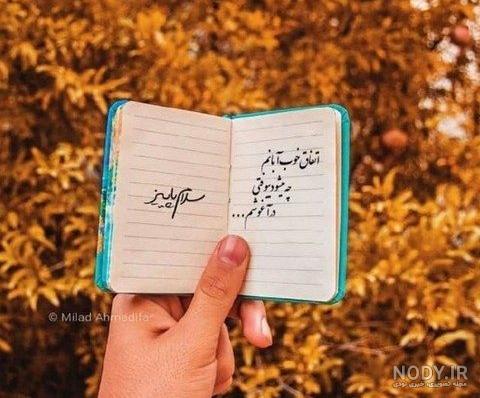 اتفاق خوب آبانم
چه میشود بیوقتی
در آغوشم...
سلام پاییز
© Milad Ahmadifar
NODY.IR
مجله تصویری، خبری نودی